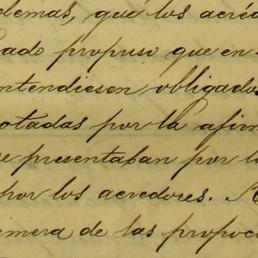 demas, que los acree
ado propuso que en
ntendiesen obligados
otadas por la afir
se presentaban por l
por los acredores.
imera de las propoc